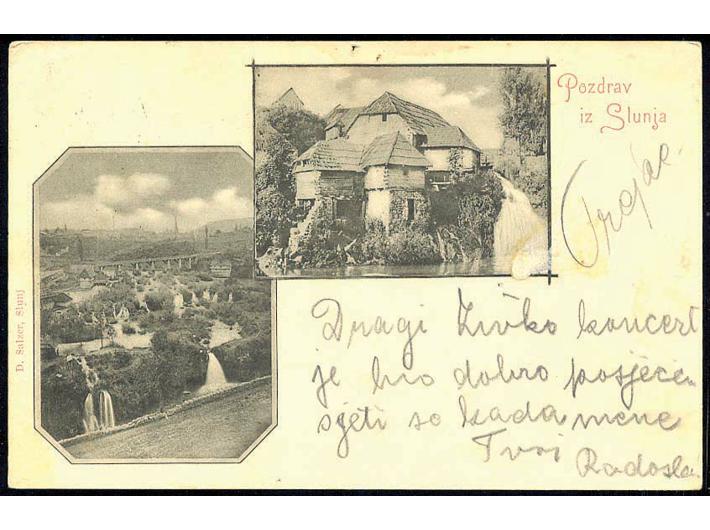 Pozdrav
iz Slunja
D. Salzer, Slunj
Dragi Živko koncert
je bio dobro posjećen
sjeti se kada mene
Tvoj
Radosla